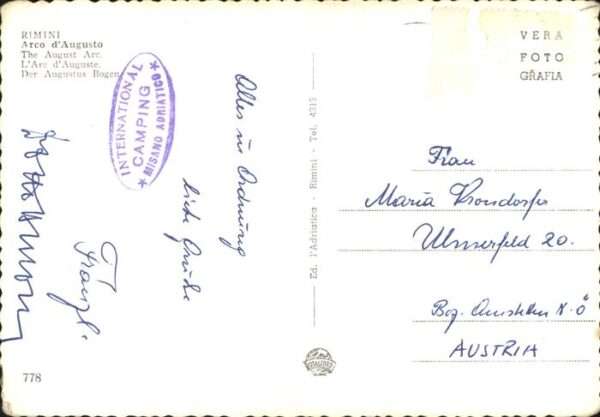 RIMINI
Arco d'Augusto
The August Arc.
L'Arc d'Auguste.
Der Augustus Bogen
INTERNATIONAL
CAMPING
★ MISANO ADRIATICO ★
Alles in Ordnung
liebe Grüße
Franzl
778
Ed. l'Adriatica - Rimini - Tel. 4313
VERA
FOTO
GRAFIA
Frau
Maria Krondorfer
Ulmerfeld 20.
Bez. Amstetten N.Ö
AUSTRIA